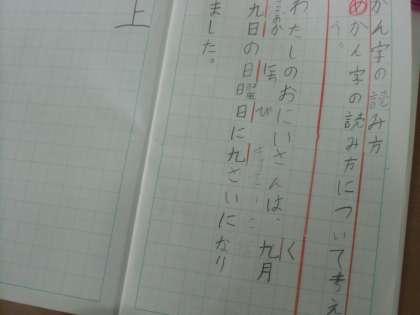 かん字の読み方
めかん字の読み方について考え
う。
く
わたしのおにいさんは、九月
び
九日の日曜日に九さいになり
ました。
上